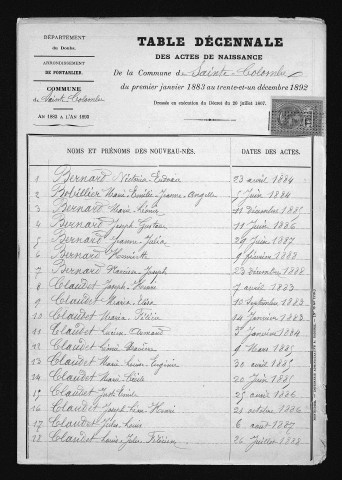 DÉPARTEMENT
du Doubs.
ARRONDISSEMENT
DE PONTARLIER.
COMMUNE
de Sainte-Colombe
AN 1883 A L'AN 1892
TABLE DÉCENNALE
DES ACTES DE NAISSANCE
De la Commune de Sainte-Colombe
du premier janvier 1883 au trente-et-un décembre 1892
Dressée en exécution du Décret du 20 juillet 1807.
NOMS ET PRÉNOMS DES NOUVEAU-NÉS. DATES DES ACTES.
1 Bernard 23 avril 1884
2 Bobillier Marie Emilie Jeanne Angèle 5 Juin 1884
3 Bernard Marie 11 Décembre 1885
4 Bernard Joseph Gustave 11 Juin 1886
5 Bernard Jeanne Julia 29 Juin 1887
6 Bernard Henriette 9 février 1888
7 Bernard Joseph 23 décembre 1888
8 Claudet Joseph Henri 7 avril 1883
9 Claudet Maria 10 Septembre 1883
10 Claudet Maria 14 Janvier 1883
11 Claudet Armand 5 Janvier 1884
12 Claudet 9 Mars 1885
13 Claudet Marie Eugénie 30 avril 1885
14 Claudet Marie 20 Juin 1885
15 Claudet 25 avril 1886
16 Claudet Joseph Henri 21 octobre 1886
17 Claudet Jules 6 août 1887
18 Claudet Louis Jules 26 Juillet 1888